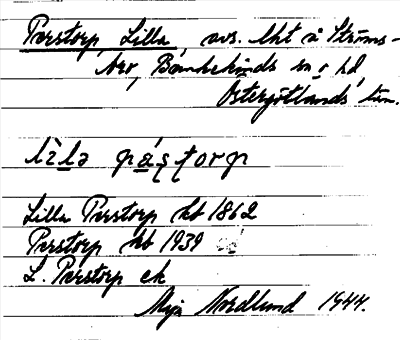 Perstorp, Lilla, avs. lht å Ströms-
bro, Bankekinds sn o hd,
Östergötlands län.
lìla pá̱ʂʈorp
Lilla Perstorp kb 1862
Perstorp kb 1939
L. Perstorp ek
Maja Nordlund 1944.